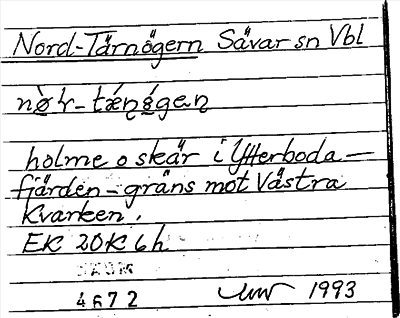 Nord-Tärnögern Sävar sn Vbl
nø̀r-tǽŋø̀gen
holme o skär i Ytterboda-
fjärden - gräns mot Västra
Kvarken.
EK 20K 6h
DAUM
4672 1993